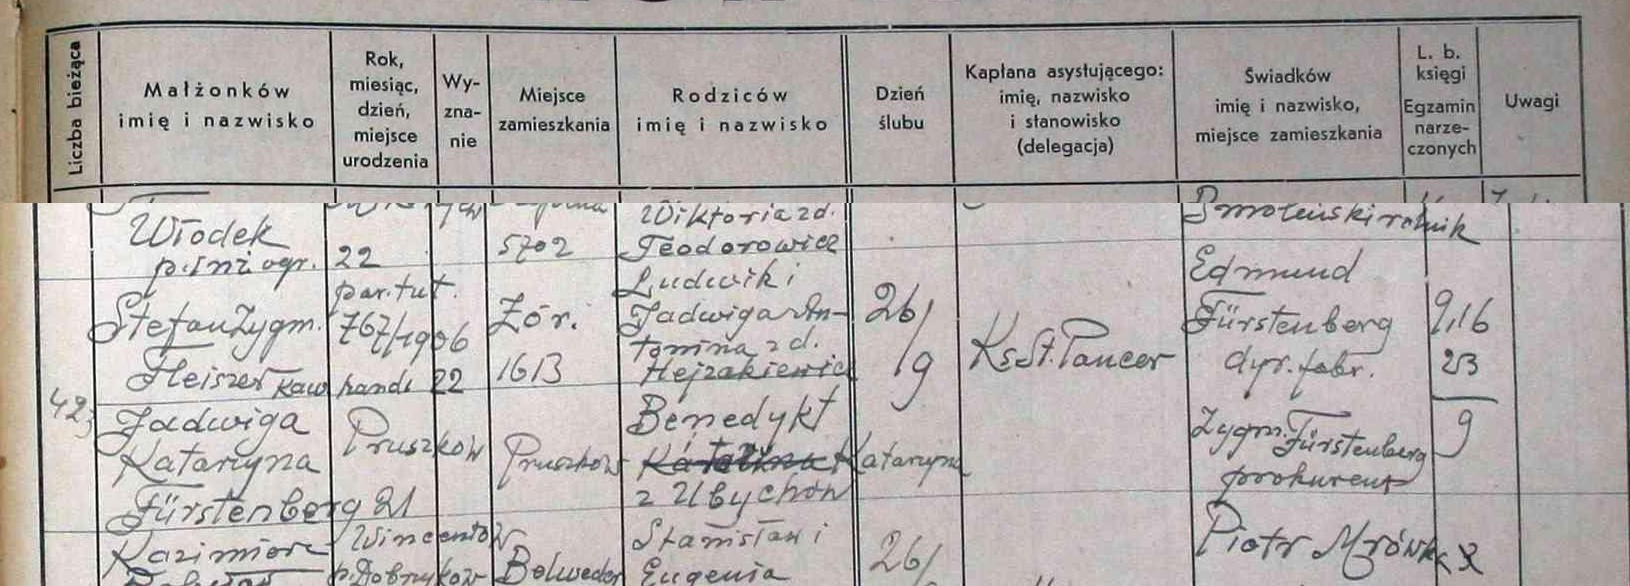 Liczba bieżąca
Małżonków
imię i nazwisko
Rok,
miesiąc,
dzień,
miejsce
urodzenia
Wy-
zna-
nie
Miejsce
zamieszkania
Rodziców
imię i nazwisko
Dzień
ślubu
Kapłana asystującego:
imię, nazwisko
i stanowisko
(delegacja)
Świadków
imię i nazwisko,
miejsce zamieszkania
L. b.
księgi
Egzamin
narze-
czonych
Uwagi
Włodek
22
5702
Wiktoria z d.
Teodorowicz
Smoleński rolnik
423
Stefan Zygm.
Fleiszer kaw. handl 22
par. tut.
767/1906
Zór.
1613
Ludwik i
Jadwiga An-
tonina z d.
Hejzakiewicz
26/
19
Ks. St. Pancer
Edmund
Fürstenberg
dyr. fabr.
9.16
23
9
Jadwiga
Katarzyna
Fürstenberg 21
Pruszków
Pruszków
Benedykt
Katarzyna
z Ubychów
Zygm. Fürstenberg
prokurent
Kazimierz
Wincentów
Belweder
Stanisław i
Eugenia
26/
Piotr Mrówka